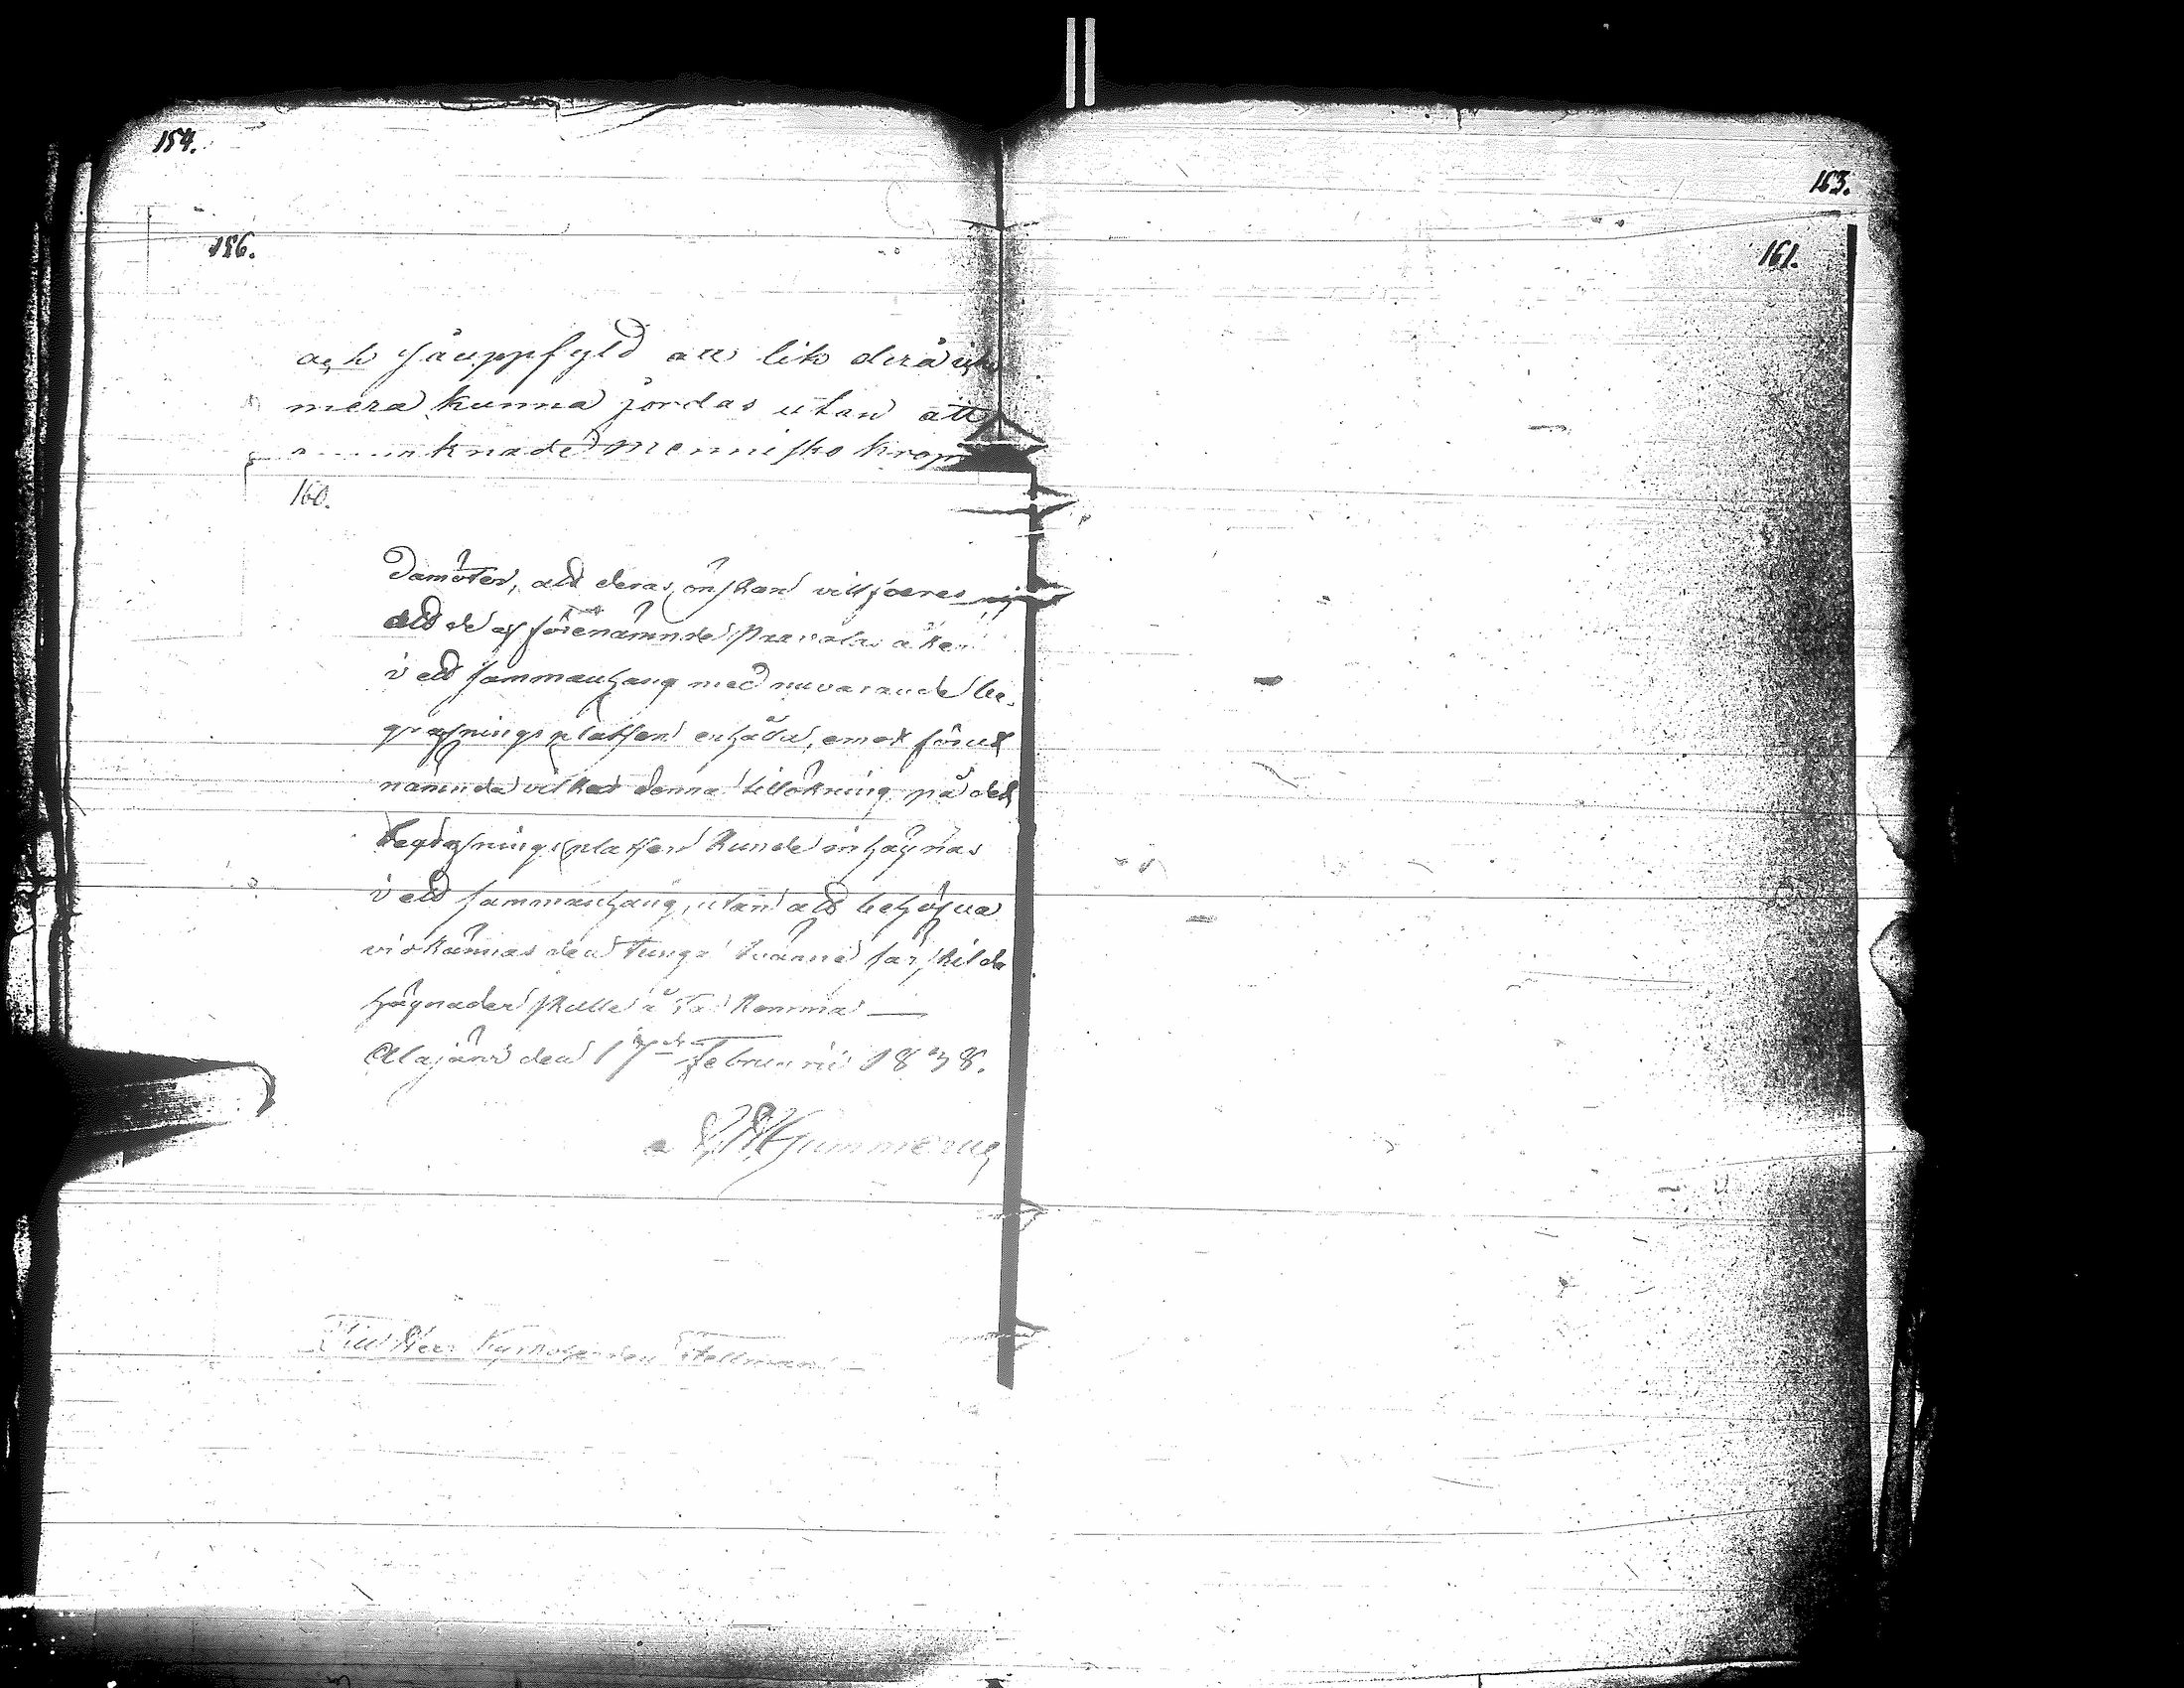 154.
156.
och så uppfyld att lik derå ick
mera kunna jordas utan att
knade mennisko krop
160.
damöter, att deras önskan vill
att de af förenämnde åker
i ett sammanhang med nuvarande be-
grafningsplatsen erhålla, emot förut
nämnde vilkor denna tillökning på det
begrafningsplatsen kunde inhägnas
i ett sammanhang, utan att behöfva
vidkännas den tunga tvänne särskilde
hägnader skulle åstadkomma —
Alajärvi den 17de Februarii 1838.
Hummerus
Till Herr Kyrkoherden Stellman
163.
161.